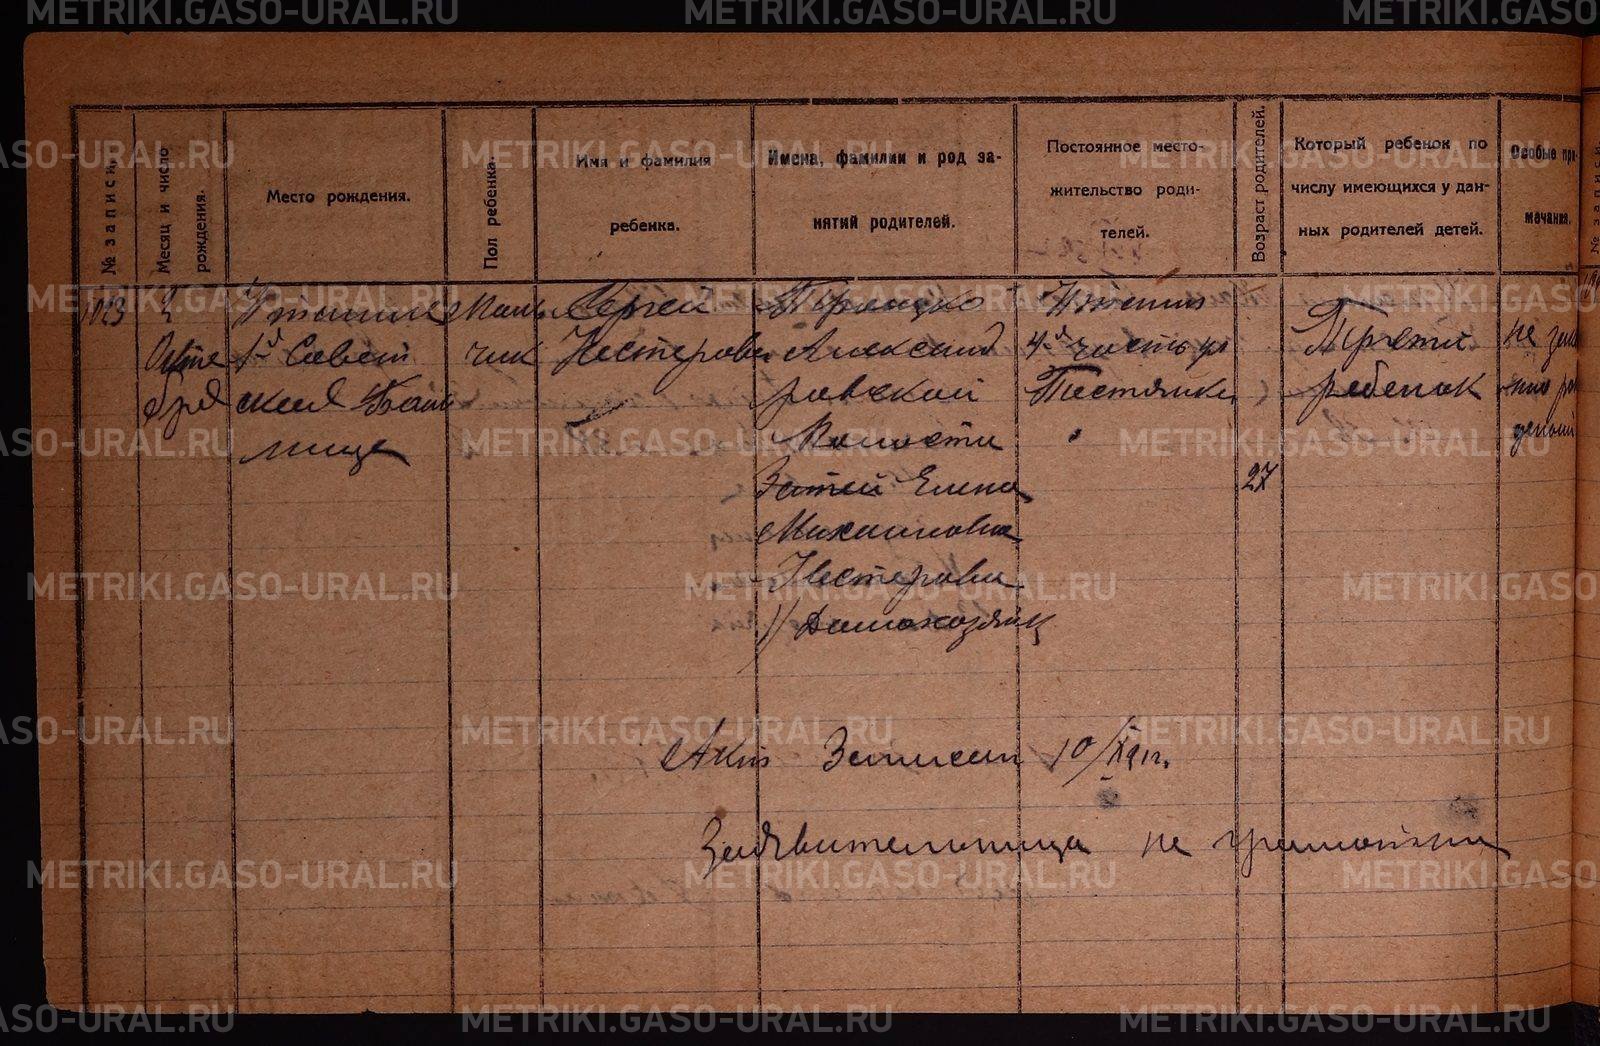 METRIKI.GASO-URAL.RU
№ записи.
Месяц и число рождения.
Место рождения.
Пол ребенка.
Имя и фамилия ребенка.
Имена, фамилии и род занятий родителей.
Постоянное место-
жительство роди-
телей.
Возраст родителей.
Который ребенок по
числу имеющихся у дан-
ных родителей детей.
Особые при-
мечания.
1023
2
Октя
бря
1й Совет
ская Боль
ница
Маль
чик
Сергей
Нестеров
Троицко
Александ
ровской
Волости
Елена
Михайловна
Нестерова
Домохозяйк
4я часть
27
Третий
ребенок
не зако
но ро
деный
Акт Записан 10/XI 21 г.
Заявительница не грамотная